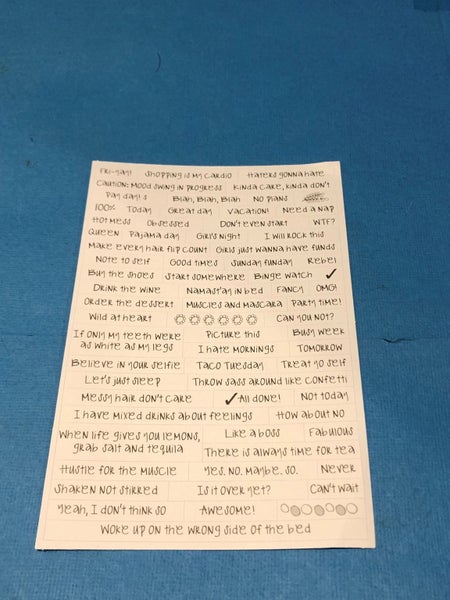 Fri-yay! Shopping is my cardio Haters gonna hate
Caution: mood swing in progress Kinda care, kinda don't
Pay day! $ Blah, Blah, Blah No plans
100% Today Great day Vacation! Need a nap
Hot mess Obsessed Don't even start WTF?
Queen Pajama day Girl's night I will rock this
Make every hair flip count Girls just wanna have funds
Note to self Good times Sunday funday Rebel
Buy the shoes Start somewhere Binge watch ✓
Drink the wine Namast'ay in bed Fancy OMG!
Order the dessert Muscles and mascara Party time!
Wild at heart Can you not?
If only my teeth were Picture this Busy week
as white as my legs I hate mornings Tomorrow
Believe in your selfie Taco Tuesday Treat yo self
Let's just sleep Throw sass around like confetti
Messy hair don't care ✓All done! Not today
I have mixed drinks about feelings How about no
When life gives you lemons, Like a boss Fabulous
grab salt and tequila There is always time for tea
Hustle for the muscle Yes. No. Maybe. So. Never
Shaken not stirred Is it over yet? Can't wait
Yeah, I don't think so Awesome!
Woke up on the wrong side of the bed